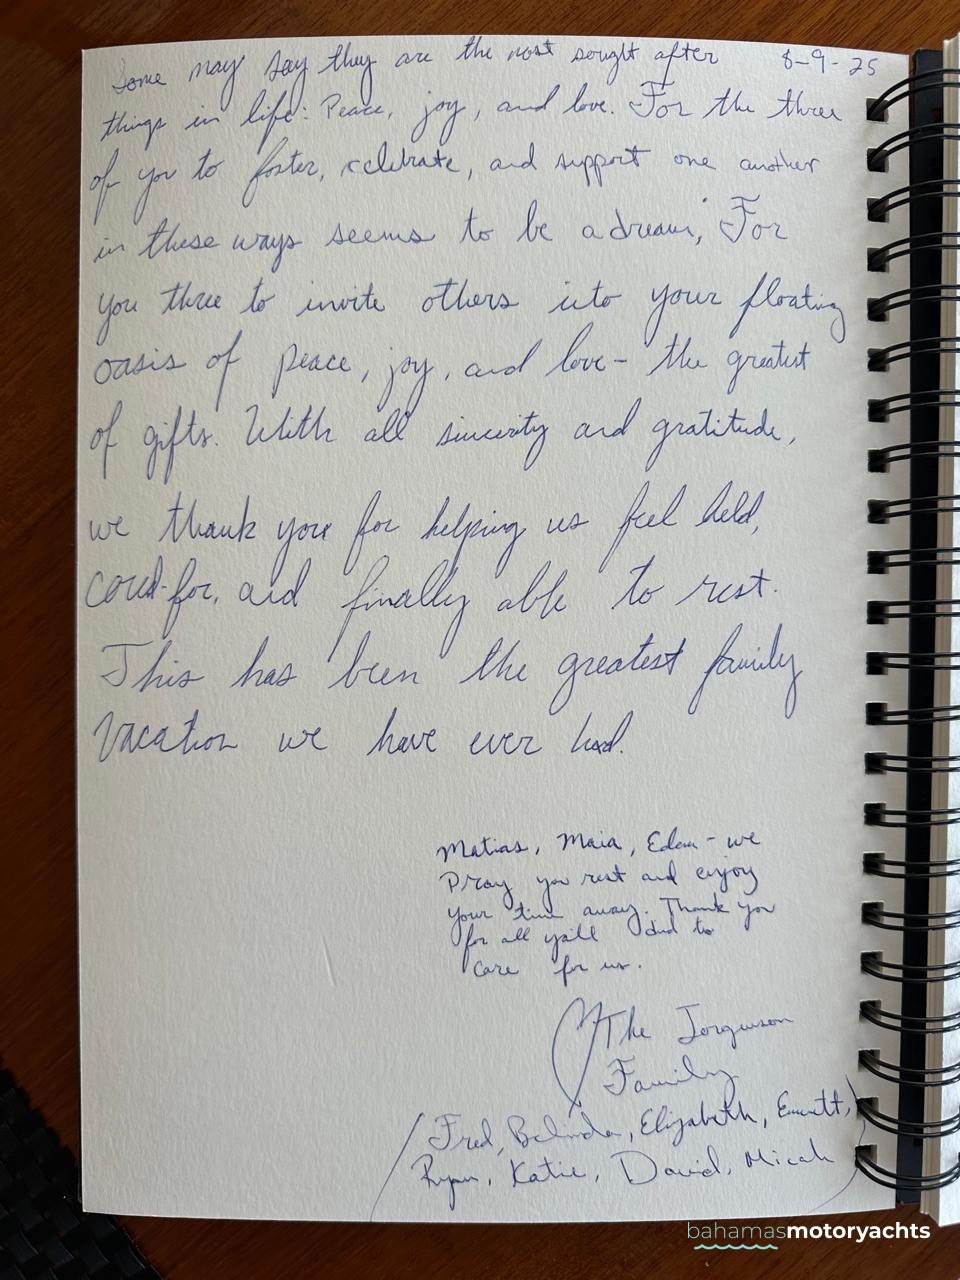 Some may say they are the most sought after 8-9-25
things in life: Peace, joy, and love. For the three
of you to foster, celebrate, and support one another
in these ways seems to be a dream; For
you three to invite others into your floating
oasis of peace, joy, and love- the greatest
of gifts. With all sincerity and gratitude,
we thank you for helping us feel held,
cared-for, and finally able to rest.
This has been the greatest family
vacation we have ever had.
Matias, Maia, Edem - we
Pray you rest and enjoy
your time away. Thank you
for all yall did to
care for us.
The Jorguson
Family
(Fred, Belinda, Elizabeth, Emmett,
Ryan, Katie, David, Micah)
bahamasmotoryachts